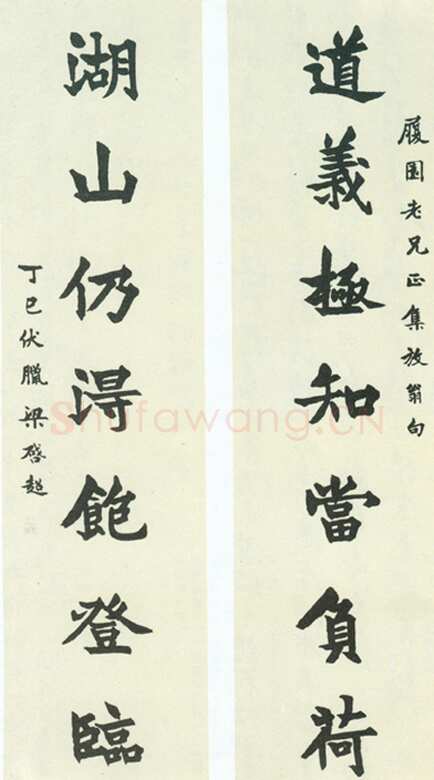 履園老兄正集放翁句
道義極知當負荷
湖山仍得飽登臨
丁巳伏臘梁啓超
Shufawang.CN